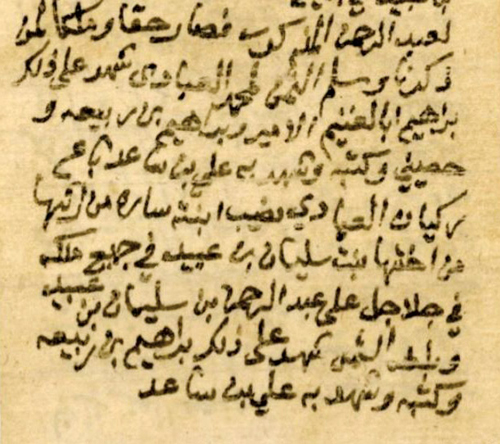 لعبد الرحمن المذكور فصار حقا وملكا لمن
ذكرنا وسلم الثمن لمحمد العبادي شهد على ذلك
براهيم ابا لغنيم الامير وبراهيم بن ربيعه و
حصيني وكتبه وشهد به علي بن ساعد باع
بن كيان العبادي نصيب ابنته ساره من ارثها
من اختها بنت سليمان بن عبيد في جميع ملكه
في جلاجل على عبد الرحمن بن سليمان بن عبيد
الثمن شهد على ذلك براهيم بن ربيعه
وكتبه وشهد به علي بن ساعد